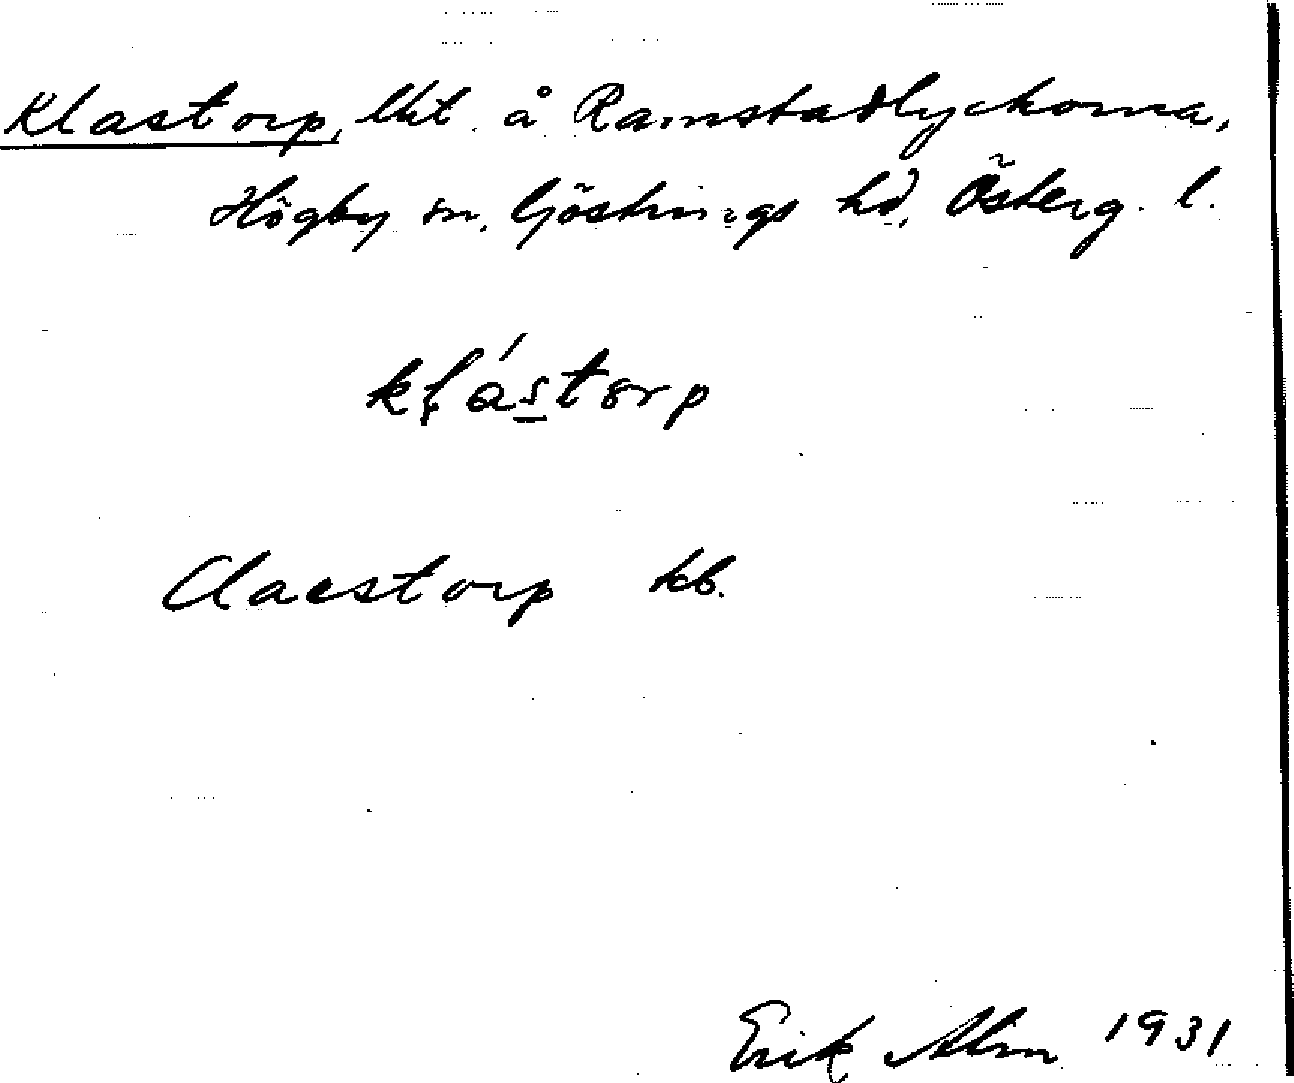 Klastorp, lht. å Ramstadlyckorna,
Högby sn, Göstrings hd, Österg. l.
klástorp
Claestorp kb.
Erik Alm 1931